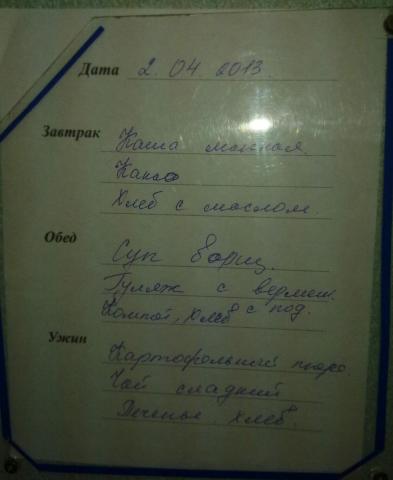 Дата 2.04.2013.
Завтрак Каша манная.
Какао
Хлеб с маслом.
Обед Суп борщ.
Гуляж с вермеш.
Компот, хлеб с под.
Ужин Картофельный пюре.
Чай сладкий
Печенье. хлеб.